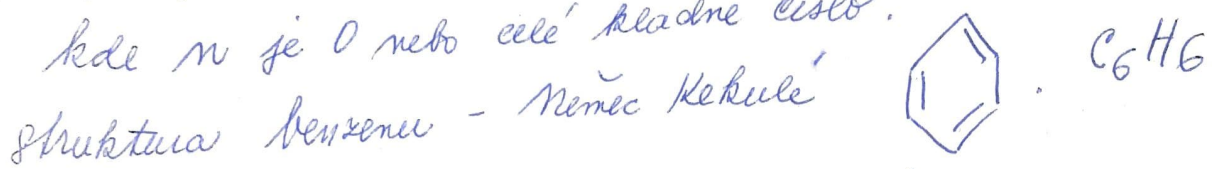 kde n je 0 nebo celé kladné číslo.
struktura benzenu - Němec Kekulé . C6H6